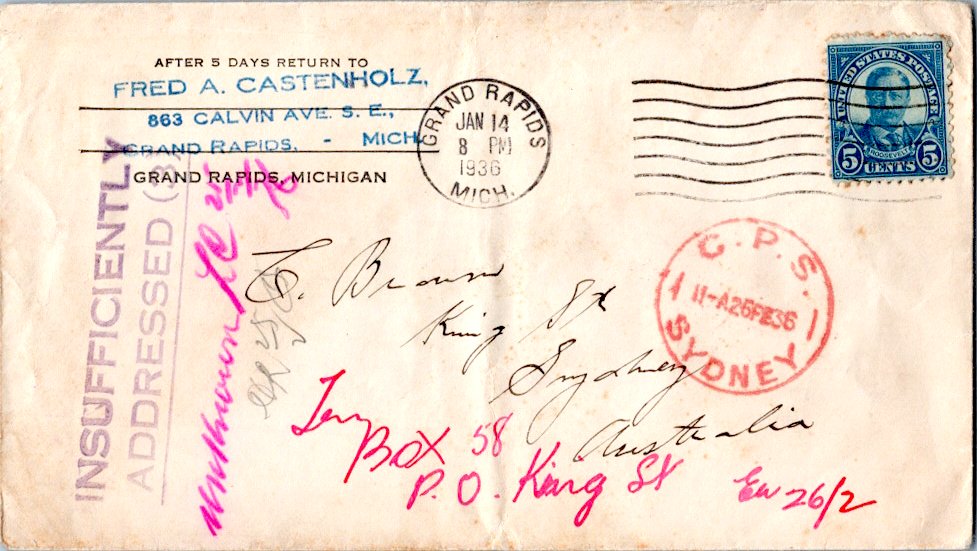 AFTER 5 DAYS RETURN TO
FRED A. CASTENHOLZ,
863 CALVIN AVE. S. E.,
GRAND RAPIDS, - MICH.
GRAND RAPIDS, MICHIGAN
GRAND RAPIDS
JAN 14
8 PM
1936
MICH.
UNITED STATES POSTAGE
ROOSEVELT
5 CENTS 5
INSUFFICIENTLY
ADDRESSED
unknown
G.P.S.
1 11-A26FE36 1
SYDNEY
Brown
King St
Sydney
Australia
Try
BOX 58
P.O. King St
26/2